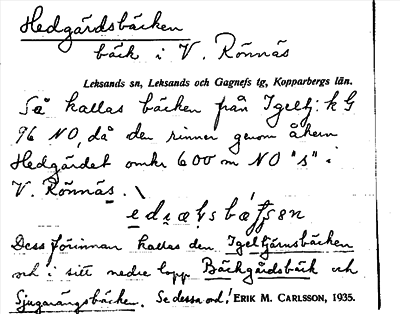 Hedgärdsbäcken
bäck i V. Rönnäs
Leksands sn, Leksands och Gagnefs tg, Kopparbergs län.
Så kallas bäcken från Igeltj: k G
96 NO, då den rinner genom åkern
Hedgärdet omkr 600 m NO "s" i
V. Rönnäs.
Dess förinnan kallas den Igeltjärnsbäcken
och i sitt nedre lopp Bäckgårdsbäck och
Sjugarängsbäcken. Se dessa ord! ERIK M. CARLSSON, 1935.